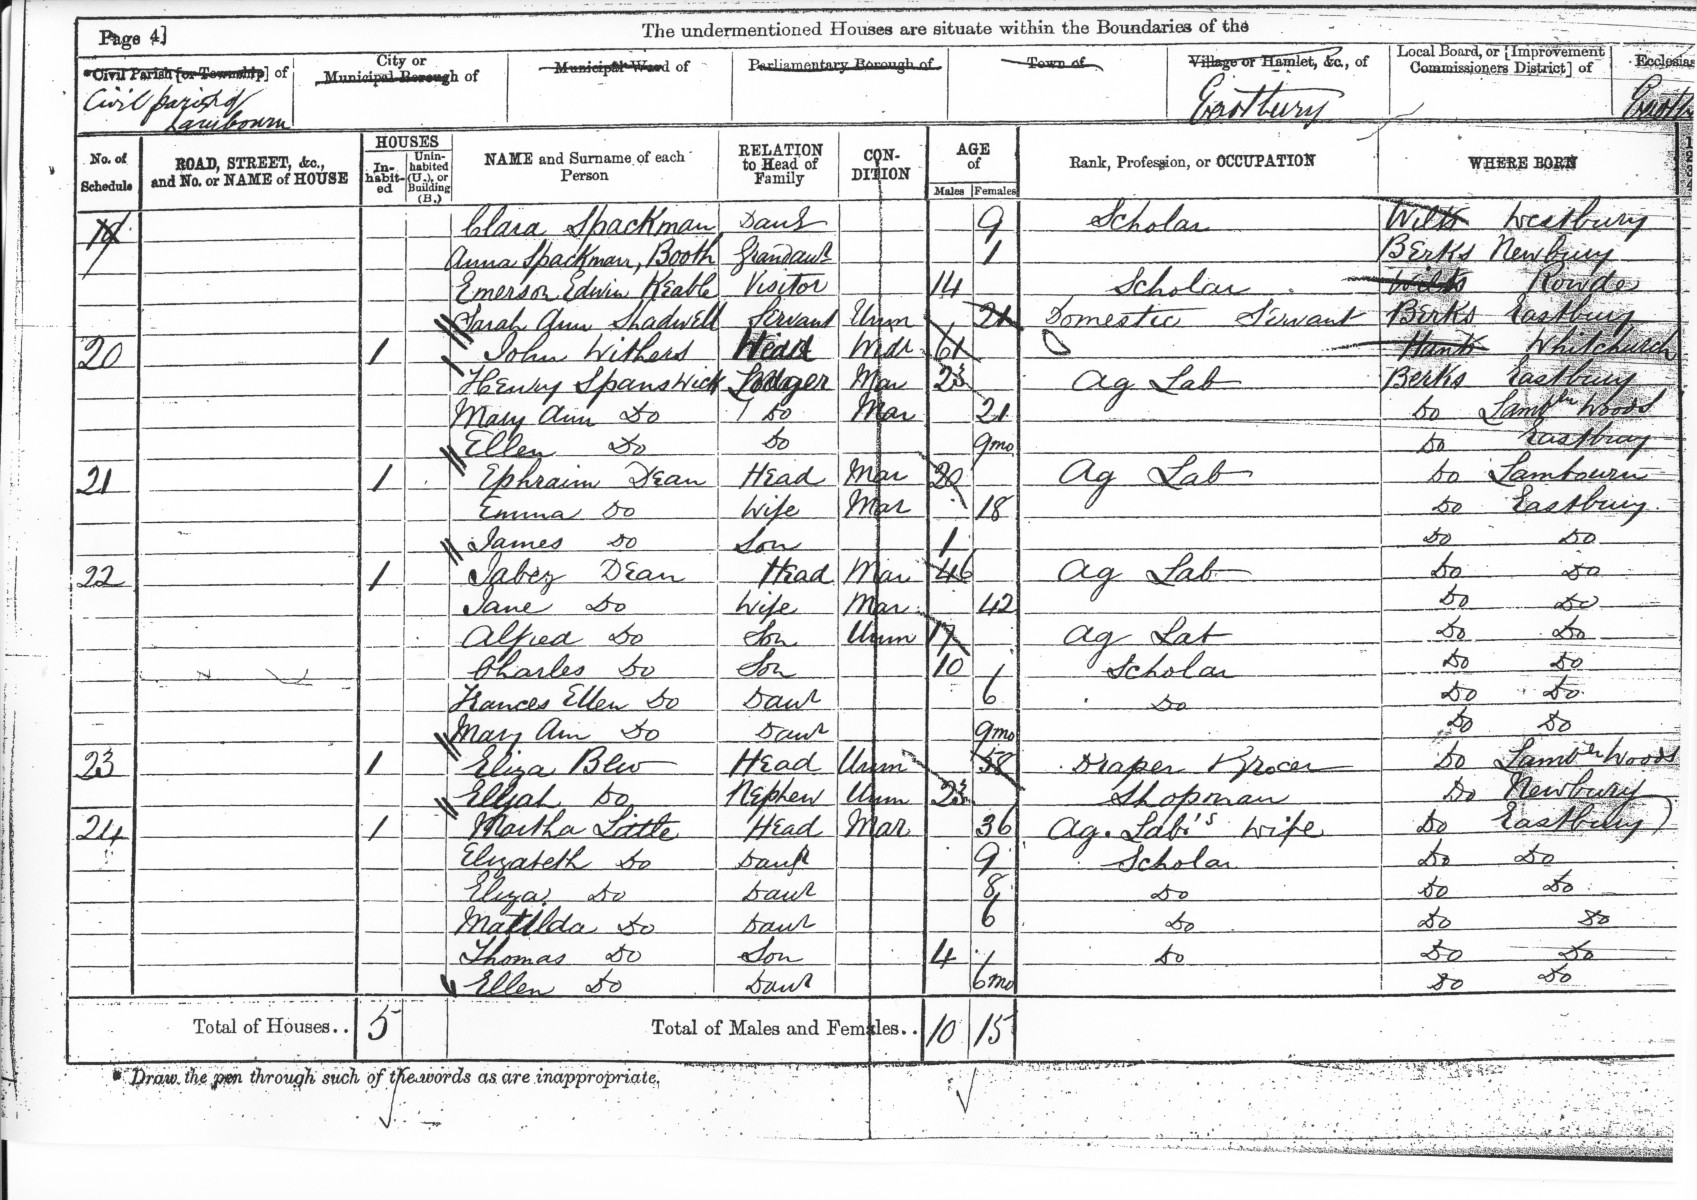 Page 4]
The undermentioned Houses are situate within the Boundaries of the
*Civil Parish [or Township] of
City or Municipal Borough of
Municipal Ward of
Parliamentary Borough of
Town of
Village or Hamlet, &c., of
Local Board, or [Improvement Commissioners District] of
Ecclesias
Civil parish of Lambourn
Eastbury
No. of Schedule
ROAD, STREET, &c., and No. or NAME of HOUSE
HOUSES
In-habit-ed
Unin-habited (U.), or Building (B.)
NAME and Surname of each Person
RELATION to Head of Family
CON-DITION
AGE of
Males
Females
Rank, Profession, or OCCUPATION
WHERE BORN
19 Clara Spackman Daur 9 Scholar Wilts Westbury
Anna Spackman, Booth Grandaur 1 Berks Newbury
Emerson Edwin Keable Visitor 14 Scholar Wilts Rowde
Sarah Ann Shadwell Servant Unm 21 Domestic Servant Berks Eastbury
20 1 John Withers Head Widr 61 Hants Whitchurch
Henry Spanswick Lodger Mar 23 Ag Lab Berks Eastbury
Mary Ann Do Do Mar 21 Do Lambn Woods
Ellen Do Do 9mo Do Eastbury
21 1 Ephraim Dean Head Mar 20 Ag Lab Do Lambourn
Emma Do Wife Mar 18 Do Eastbury
James Do Son 1 Do Do
22 1 Jabez Dean Head Mar 46 Ag Lab Do Do
Jane Do Wife Mar 42 Do Do
Alfred Do Son Unm 17 Ag Lab Do Do
Charles Do Son 10 Scholar Do Do
Frances Ellen Do Daur 6 Do Do Do
Mary Ann Do Daur 9mo Do Do
23 1 Eliza Blew Head Unm 58 Draper Grocer Do Lambn Woods
Elijah Do Nephew Unm 23 Shopman Do Newbury
24 1 Martha Little Head Mar 36 Ag. Lab's wife Do Eastbury
Elizabeth Do Daur 9 Scholar Do Do
Eliza Do Daur 8 Do Do Do
Matilda Do Daur 6 Do Do Do
Thomas Do Son 4 Do Do Do
Ellen Do Daur 6mo Do Do
Total of Houses.. 5 Total of Males and Females.. 10 15
* Draw the pen through such of the words as are inappropriate.